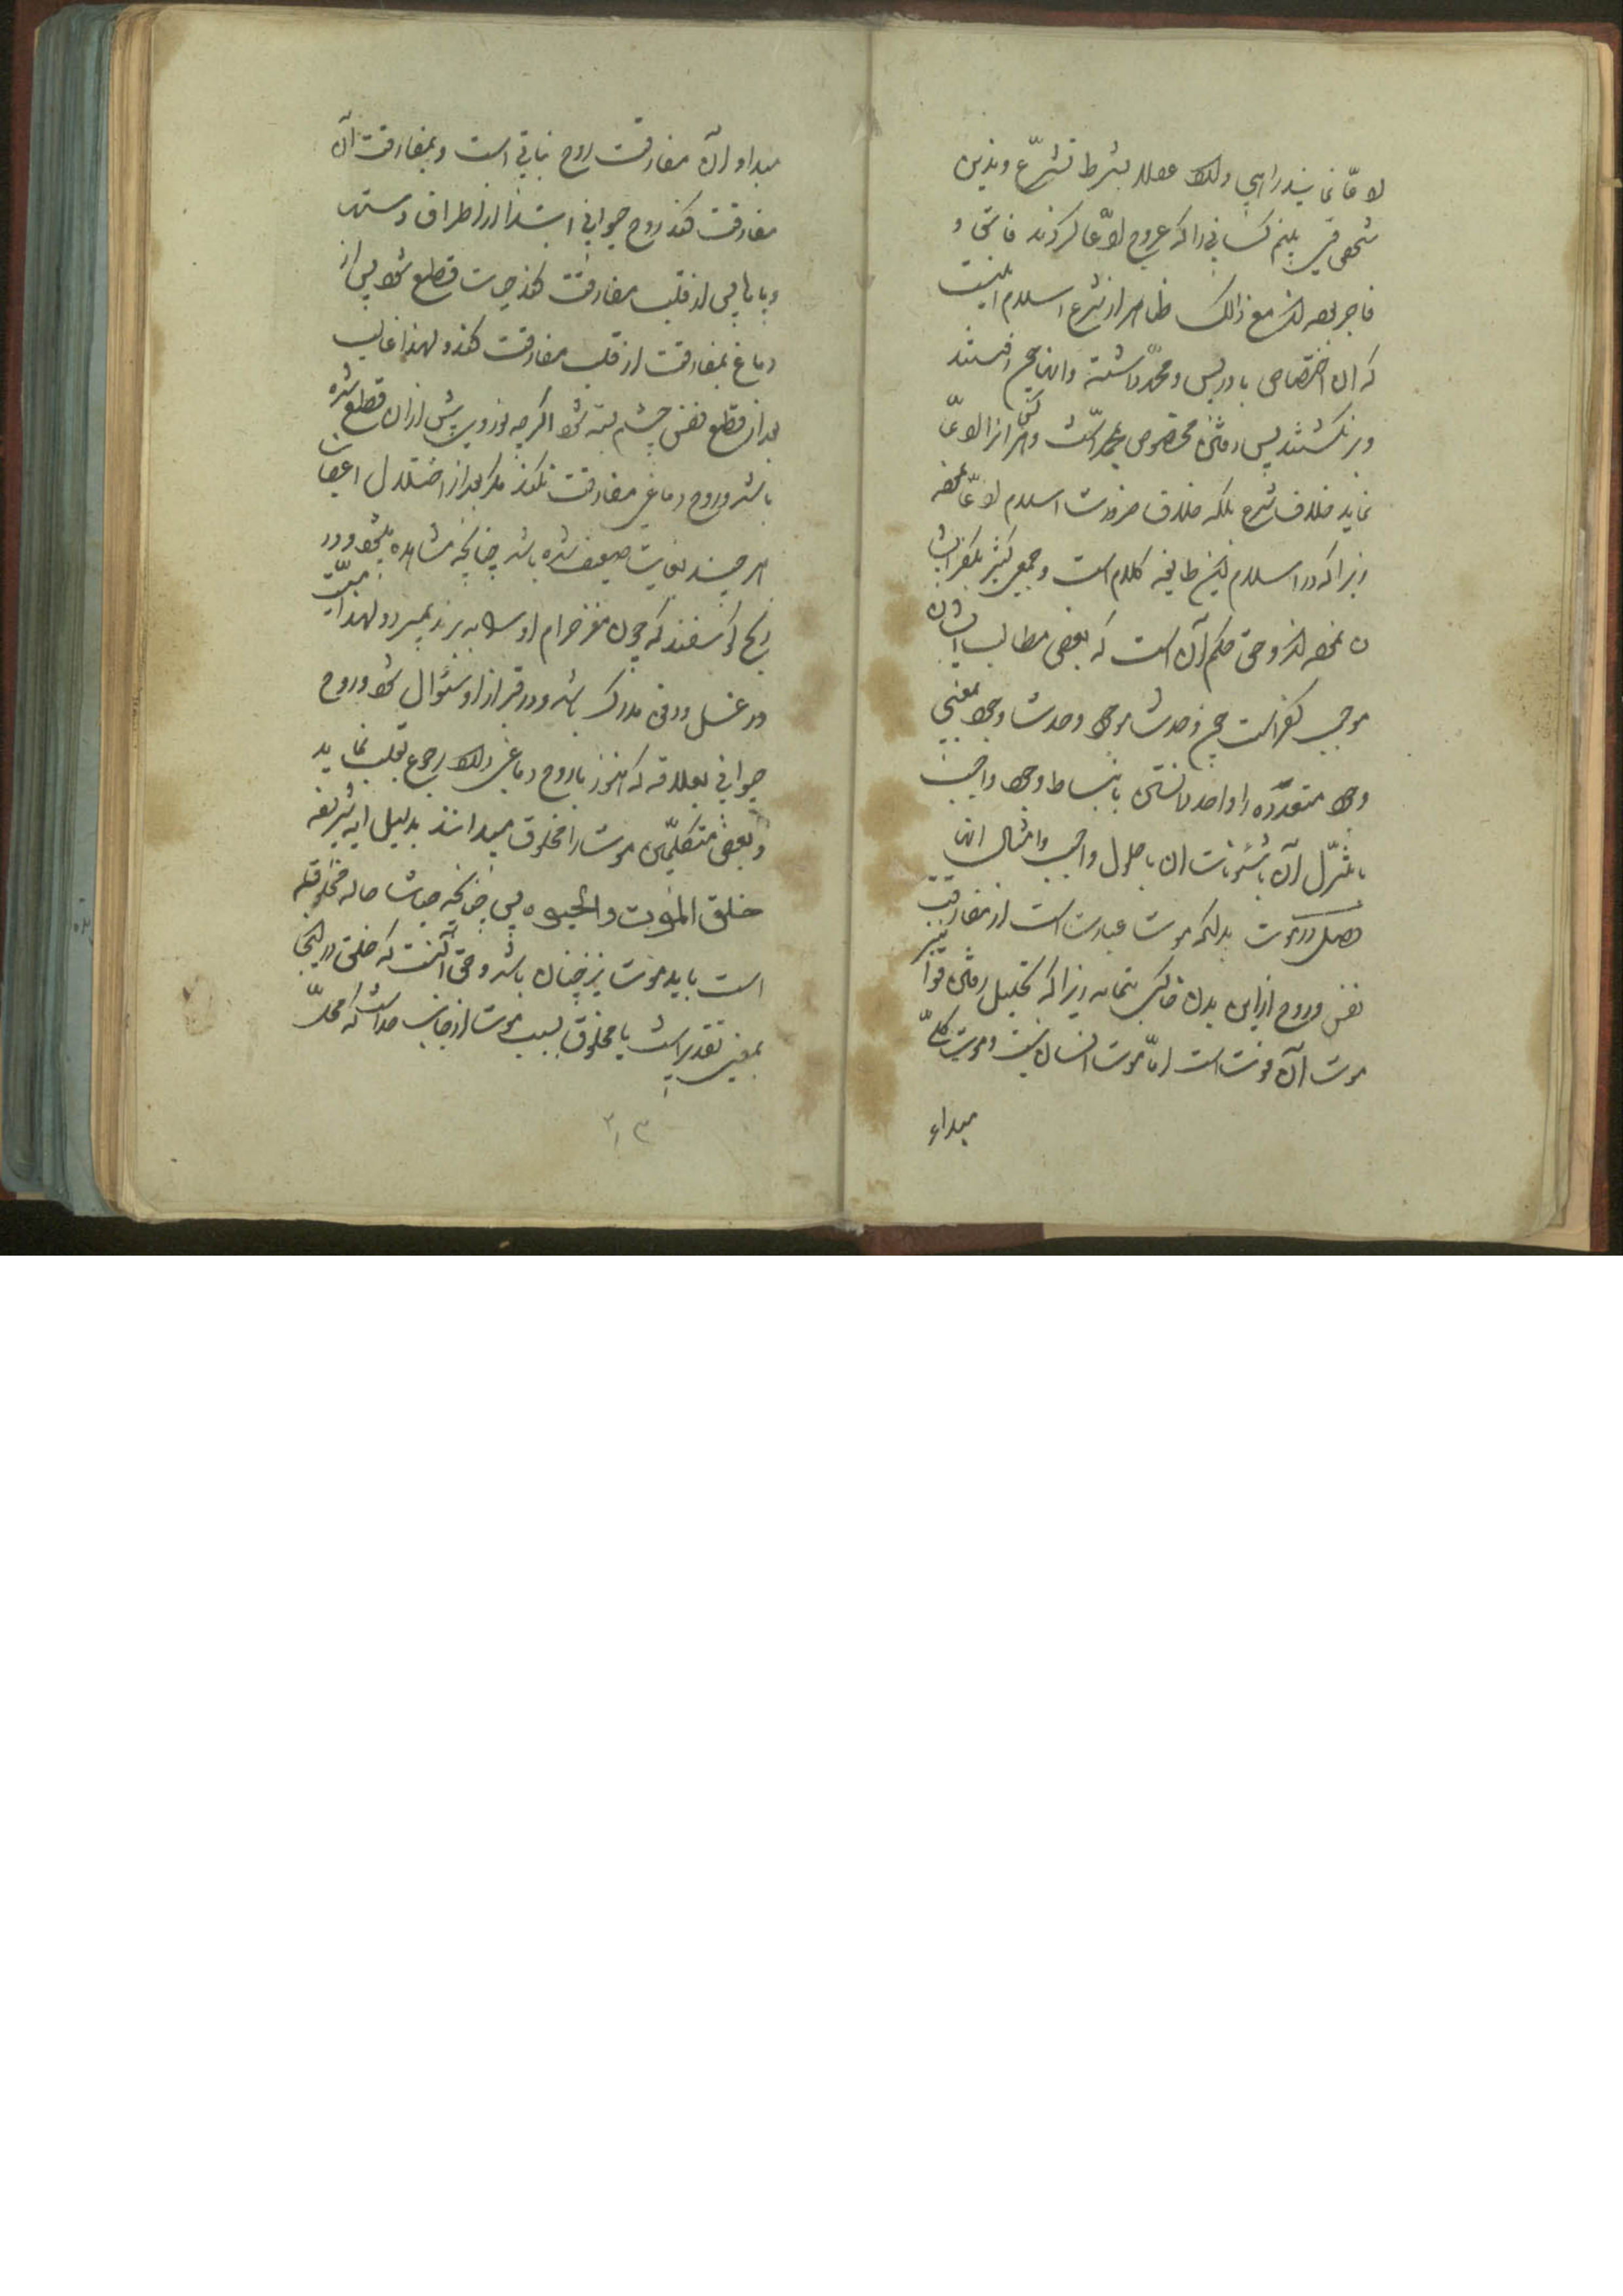 نمایند راهی ولک عقلا بشرط تشرّع وتدین
شخصی می بینم کسانی را که عروج ادّعا کردند فاسق و
فاجر بوده اند مع ذالک ظاهر از شرع اسلام اینست
که آن اختصاص بادریس ومحمّد داشته وانها هم رفتند
وبرنگشتند پس رفتن مخصوص محمّد است وهر کس انرا ادّعا
نماید خلاف شرع بلکه خلاف ضرورت اسلام ادّعا نموده
زیرا که در اسلام این طایفه کلام است وجمعی کثیر بکفر ایشا
ن نموده اند وحق حکم آن است که بعضی مطالب ایشان
موجب کفر است چون وحدت موجود وحدت وجود بمعنی
وجود متعدّده را واحد دانستن بانبساط وجود واجب
یا تنزّل آن بشئونات ان یا حلول واجب وامثال انها
فصل در موت بدانکه موت عبارت است از مفارقت
نفس وروح از این بدن خاکی بتمامه زیرا که تحلیل رفتن قوا نیز
موت آن قوت است امّا موت انسان نیست وموت کلّ
مبداء
مبداء آن مفارقت روح نباتی است وبمفارقت آن
مفارقت کند روح حیوانی ابتدا از اطراف دستها
وپاها پس از قلب مفارقت کند حیات قطع شود پس از
دماغ بمفارقت از قلب مفارقت کند ولهذا غالب
بعد از قطع نفس چشم بسته شود اگرچه نور وی پیش از ان قطع شده
باشد وروح دماغی مفارقت نکند مگر بعد از اختلال اعصاب
هر چند بغایت ضعیف شده باشد چنانچه مشاهده میشود در
ذبح گوسفند که چون مغز حرام او را ببرند بمیرد ولهذا میّت
در غسل ودفن مدرک باشد ودر قبر از او سئوال شود وروح
حیوانی بعلاقه که هنوز با روح دماغی دارد رجوع بقلب نماید
وبعضی متکلّمین موت را مخلوق میدانند بدلیل ایه شریفه
خلق الموت والحیوه پس چنانچه حیات حاله مخلوقه
است باید موت نیز چنان باشد وحق آنست که خلق در اینجا
بمعنی تقدیر است یا مخلوق سبب موت از جانب خداست که محلّ
۲۱۳